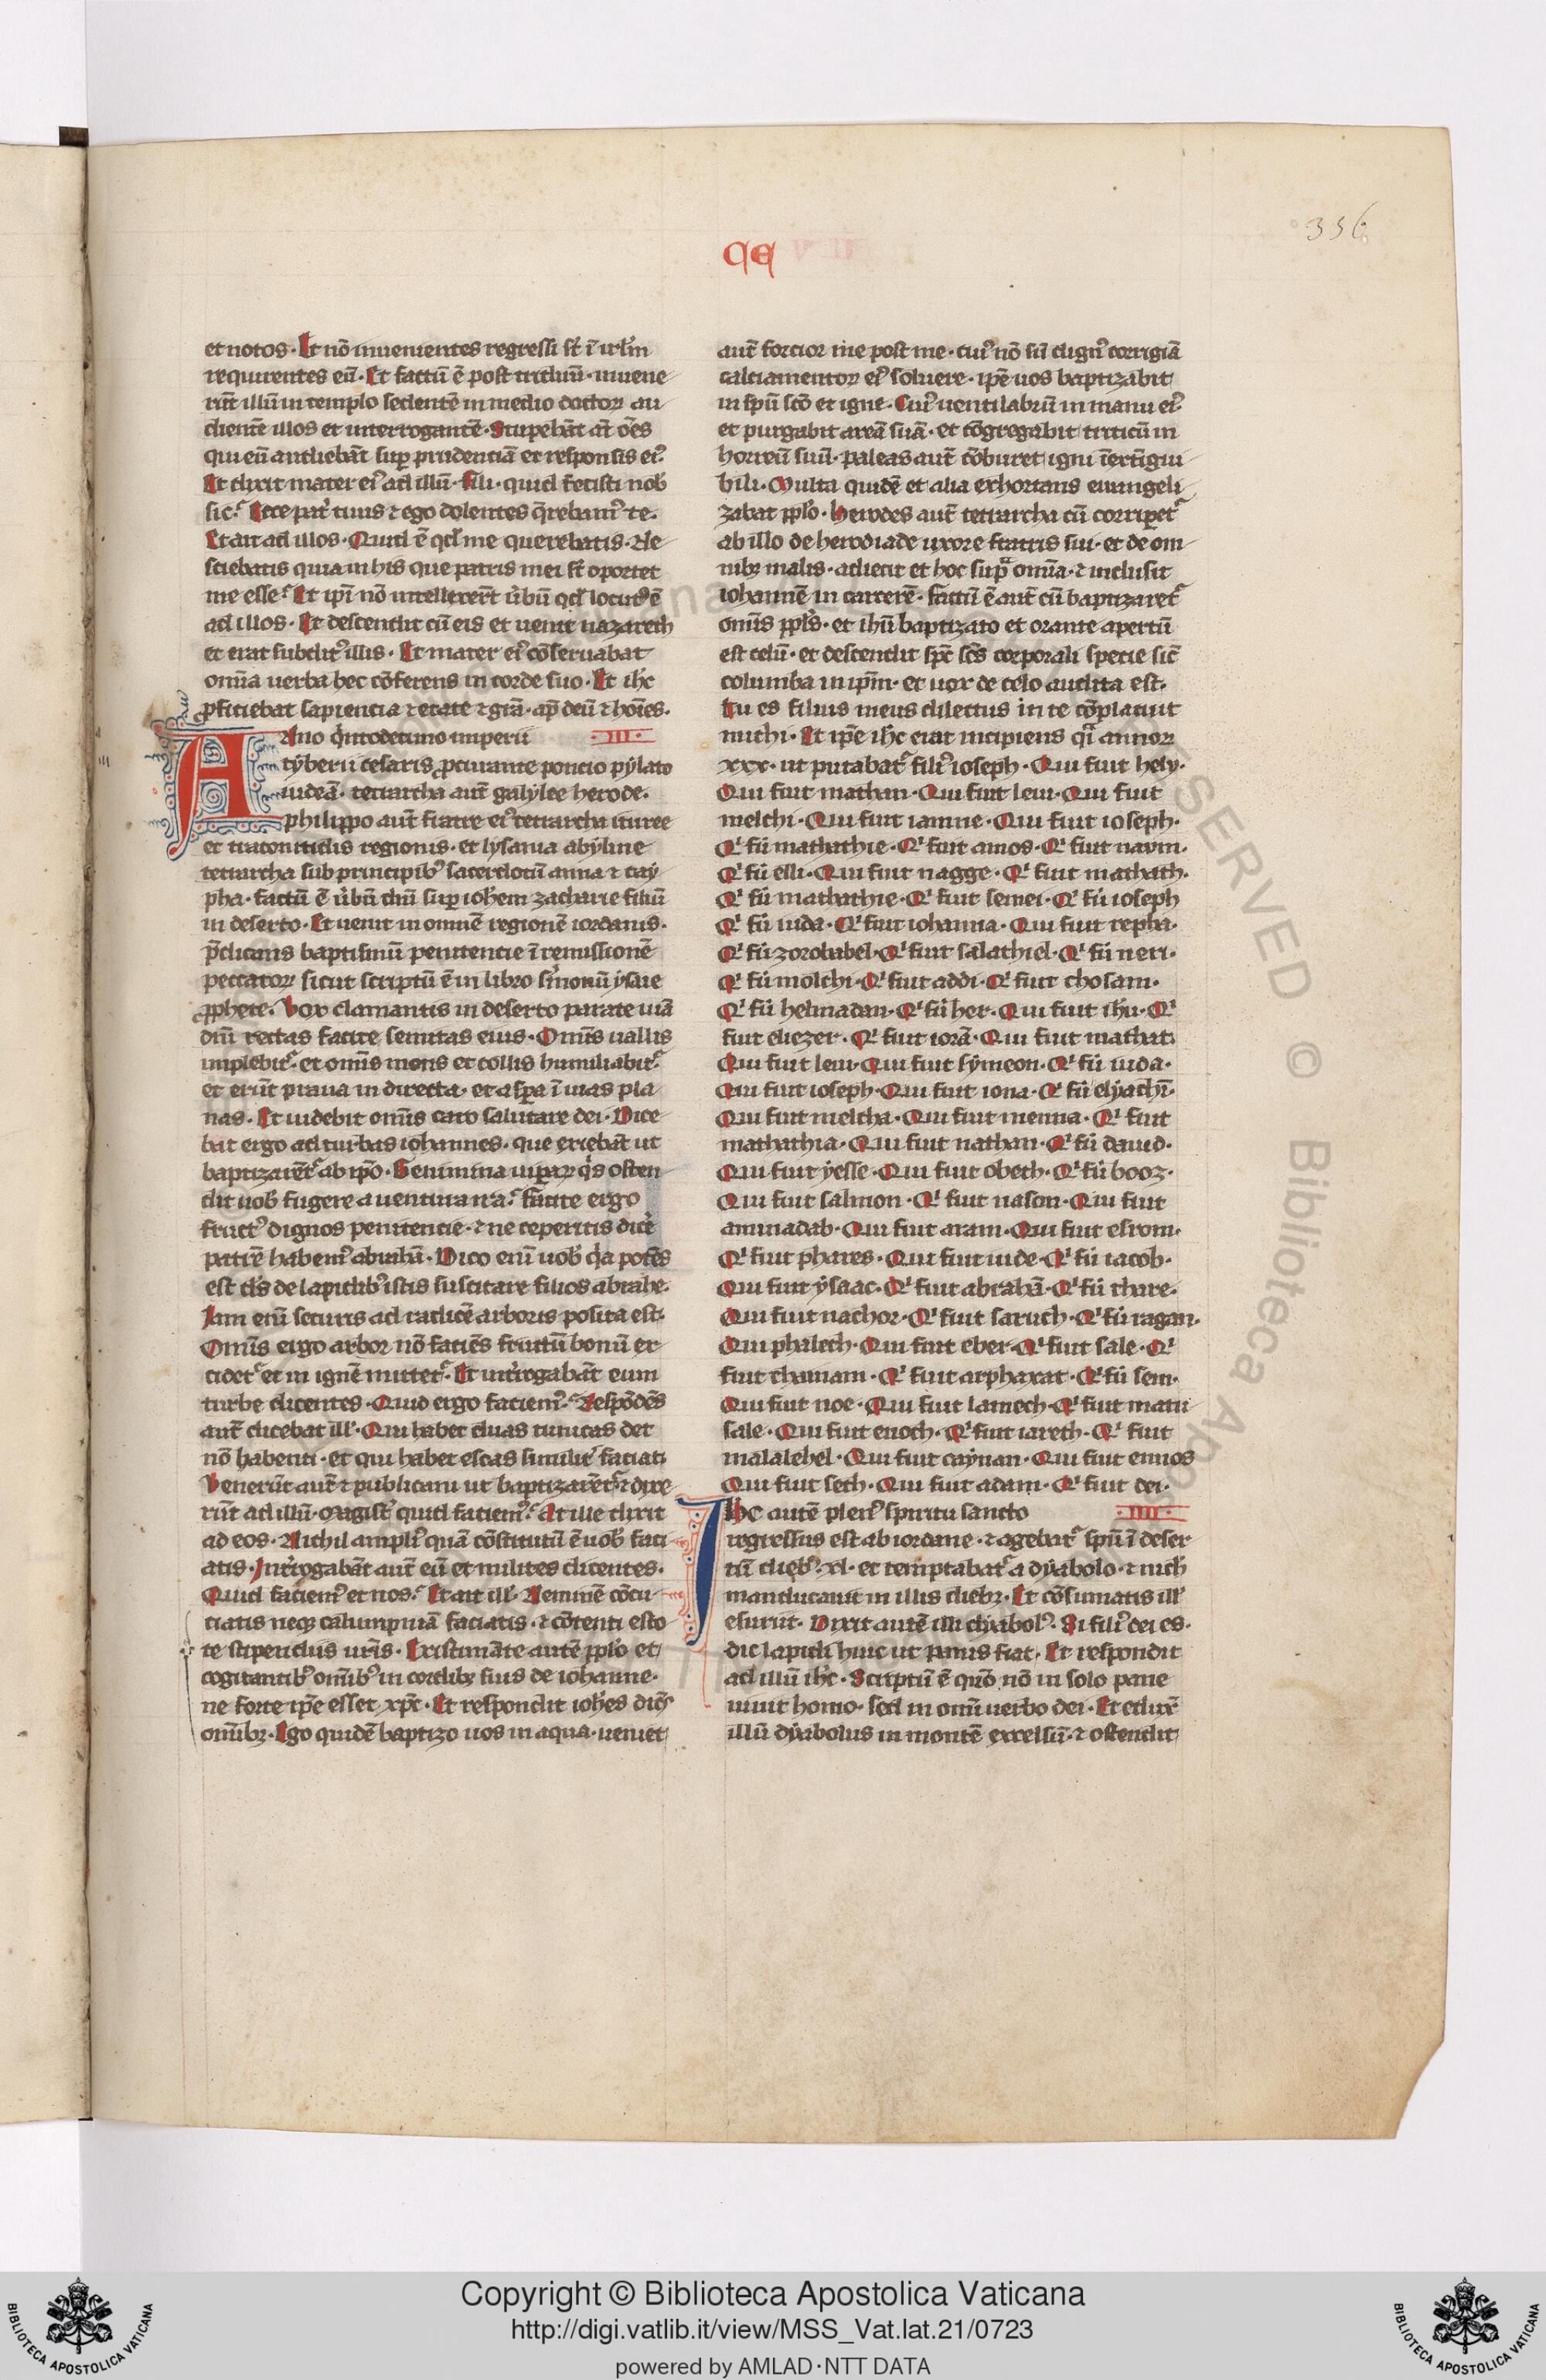 356
et notos · Et nō inuenientes regressi st̄ ī irl̄m
requirentes eū · Et factū ē post triduū · inuene
rūt illū in templo sedentē in medio doctoꝝ au
dientē illos et interrogantē · Stupebāt at̄ oēs
qui eū audiebāt suꝑ prudenciā et responsis eiꝰ
Et dixit mater eiꝰ ad illū · fili · quid fecisti nob̄
sic · Ecce pat̄ tuus ⁊ ego dolentes q̄rebamꝰ te ·
Et ait ad illos · Quid ē qd̄ me querebatis · Ne
sciebatis quia in his que patris mei st̄ oportet
me esse · Et ip̄i nō intellexer̄t ūbū qd̄ locutꝰ ē
ad illos · Et descendit cū eis et uenit nazareth
et erat subditꝰ illis · Et mater eiꝰ cōseruabat
om̄ia uerba hec cōferens in corde suo · Et ih̄c
ꝓficiebat sapiencia ⁊ etate ⁊ gr̄a · ap̄ deū ⁊ hoīes ·
Anno q̄ntodecimo imperii · III ·
tẏberii cesaris ꝓcurante poncio pẏlato
iudeā · tetrarcha aut̄ galẏlee herode ·
philippo aut̄ fratre eiꝰ tetrarchaituree
et traconitidis regionis · et lẏsania abẏline
tetrarcha sub principibꝰ sacerdotū anna ⁊ caẏ
pha · factū ē ūbū dn̄i suꝑ ioh̄em zacharie filiū
in deserto · Et uenit in omnē regionē iordanis ·
p̄dicans baptismū penitencie ī remissionē
peccatoꝝ sicut scriptū ē in libro s̄monū ẏsaie
ꝓphete · Vox clamantis in deserto parate uiā
dn̄i rectas facite semitas eius · Om̄is uallis
implebit᷑ · et om̄is mons et collis humiliabit᷑ ·
et erūt praua in directa · et aspꝑa ī uias pla
nas · Et uidebit om̄is caro salutare dei · Dice
bat ergo ad turbas iohannes · que exiebāt ut
baptizarēt᷑ ab ip̄o · Genimina uiꝑaꝝ q̄s osten
dit uob̄ fugere a uentura ira · facite ergo
fructꝰ dignos penitencie · ⁊ ne ceperitis dicē
patrē habemꝰ abrahā · Dico enī uob̄ q̄a potēs
est dꝰs de lapidibꝰ istis suscitare filios abrahe ·
Iam enī securis ad radicē arboris posita est ·
Om̄is ergo arbor nō faciēs fructū bonū ex
cidet᷑ et in ignē mittet᷑ · Et int̄rogabāt eum
turbe dicentes · Quid ergo faciemꝰ · Respōdēs
aut̄ dicebat ill̄ · Qui habet duas tunicas det
nō habenti · et qui habet escas similit̄ faciat ·
Venerūt aut̄ ⁊ publicani ut baptizarēt᷑ ⁊ dixe
rūt ad illū · magist̄ quid faciemꝰ · At ille dixit
ad eos · Nichil ampliꝰ quā cōstitutū ē uob̄ faci
atis · Int̄rogabāt aut̄ eū et milites dicentes ·
Quid faciemꝰ et nos · Et ait ill̄ · Neminē cōcu
ciatis neqꝫ calumpniā faciatis · ⁊ cōtenti esto
te stipendiis ur̄is · Existimāte autē pp̄lo et
cogitantibꝰ om̄ibꝰ in cordibꝫ suis de iohanne ·
ne forte ip̄e esset xp̄c · Et respondit ioh̄es diēs
om̄ibꝫ · Ego quidē baptizo uos in aqua · ueniet
aut̄ forcior me post me · cuiꝰ nō sū dignꝰ corrigiā
calciamentoꝝ eiꝰ soluere · ip̄e uos baptizabit
in sp̄u scō et igne · Cuiꝰ uentilabrū in manu eiꝰ
et purgabit areā suā · et cōgregabit triticū in
horreū suū · paleas aut̄ cōburet igni īextīgui
bili · Multa quidē et alia exhortans euangeli
zabat pp̄lo · Herodes aut̄ tetrarcha cū corripet᷑
ab illo de herodiade uxore fratris sui · et de om
nibꝫ malis · adiecit et hoc sup̄ om̄ia · ⁊ inclusit
iohannē in carcerē · factū ē aut̄ cū baptizaret᷑
om̄is pp̄ls · et ih̄u baptizato et orante apertū
est celū · et descendit sp̄c sc̄s corporali specie sic̄
columba in ip̄m · et uox de celo audita est ·
Tu es filius meus dilectus in te cōplacuit
michi · Et ip̄e ih̄c erat incipiens q̄i annoꝝ
xxx · ut putabat᷑ filiꝰ ioseph · Qui fuit hely ·
Qui fuit mathan · Qui fuit leui · Qui fuit
melchi · Qui fuit iamne · Qui fuit ioseph ·
Qⁱ fū mathathie · Qⁱ fuit amos · Qⁱ fuit naum ·
Qⁱ fū elli · Qui fuit nagge · Qⁱ fuit mathath ·
Qⁱ fū mathathie · Qⁱ fuit semei · Qⁱ fū ioseph
Qⁱ fū iuda · Qⁱ fuit iohanna · Qui fuit repha ·
Qⁱ fū zorobabel · Qⁱ fuit salathiel · Qⁱ fū neri ·
Qⁱ fū molchi · Qⁱ fuit addi · Qⁱ fuit chosam ·
Qⁱ fū helmadan · Qⁱ fū her · Qui fuit ih̄u · Qⁱ
fuit eliezer · Qⁱ fuit iorā · Qui fuit mathat ·
Qui fuit leui · Qui fuit sẏmeon · Qⁱ fū iuda ·
Qui fuit ioseph · Qui fuit iona · Qⁱ fū elẏachī ·
Qui fuit melcha · Qui fuit menna · Qⁱ fuit
mathathia · Qui fuit nathan · Qⁱ fū dauid ·
Qui fuit ẏesse · Qui fuit obeth · Qⁱ fū booz ·
Qui fuit salmon · Qⁱ fuit nason · Qui fuit
aminadab · Qui fuit aram · Qui fuit esrom ·
Qⁱ fuit phares · Qui fuit iude · Qⁱ fū iacob ·
Qui fuit ẏsaac · Qⁱ fuit abrahā · Qⁱ fū thare ·
Qui fuit nachor · Qⁱ fuit saruch · Qⁱ fū ragau ·
Qui phalech · Qui fuit eber · Qⁱ fuit sale · Qⁱ
fuit chainam · Qⁱ fuit arphaxat · Qⁱ fū sem ·
Qui fuit noe · Qui fuit lamech · Qⁱ fuit matu
sale · Qui fuit enoch · Qⁱ fuit iareth · Qⁱ fuit
malalehel · Qui fuit caẏnan · Qui fuit ennos
Qui fuit seth · Qui fuit adam · Qⁱ fuit dei ·
Ihc autē plenꝰ spiritu sancto · IIII ·
regressus est ab iordane · ⁊ agebat᷑ sp̄u ī deser
tū diebꝰ · xl · et temptabat᷑ a dẏabolo · ⁊ nich̄
manducauit in illis diebꝫ · Et cōsumatis ill̄
esuriit · Dixit autē illi dẏabolꝰ · Si filiꝰ dei es ·
dic lapidi huic ut panis fiat · Et respondit
ad illū ih̄c · Scriptū ē quō nō in solo pane
uiuit homo · sed in om̄i uerbo dei · Et duxit
illū dẏabolus in montē excelsū · ⁊ ostendit
Copyright © Biblioteca Apostolica Vaticana
http://digi.vatlib.it/view/MSS_Vat.lat.21/0723
powered by AMLAD·NTT DATA
BIBLIOTECA APOSTOLICA VATICANA
BIBLIOTECA APOSTOLICA VATICANA